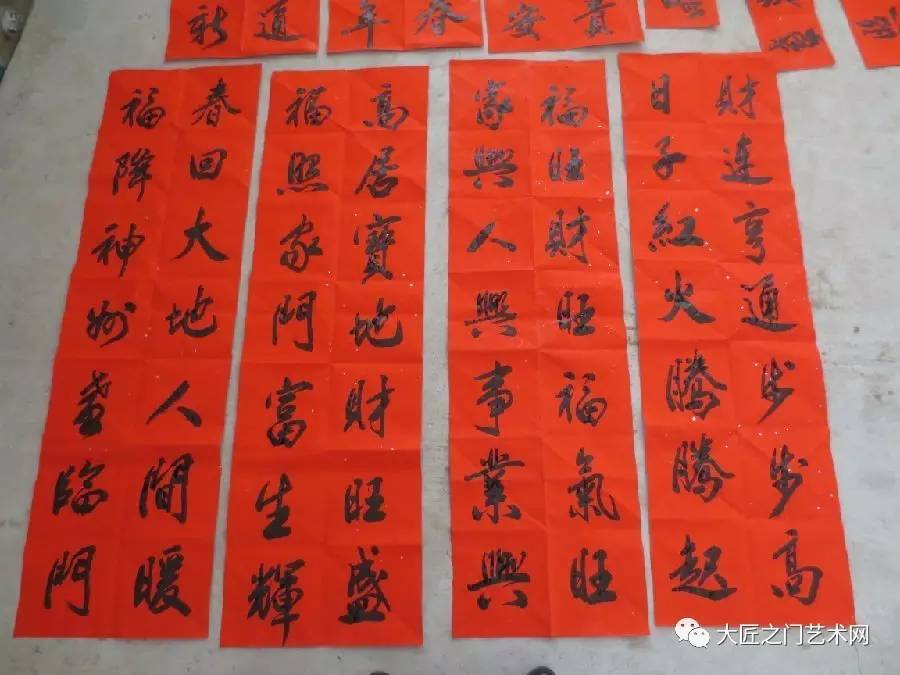 貴
安
春
年
新
財連亨通步步高
日子紅火騰騰起
福旺財旺福氣旺
家興人興事業興
高居寶地財旺盛
福照家門富生輝
春回大地人間暖
福降神州喜臨門
大匠之门艺术网